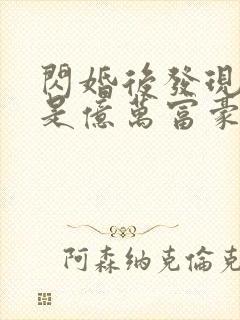 閃婚後發現
是億萬富豪
阿森納克倫克